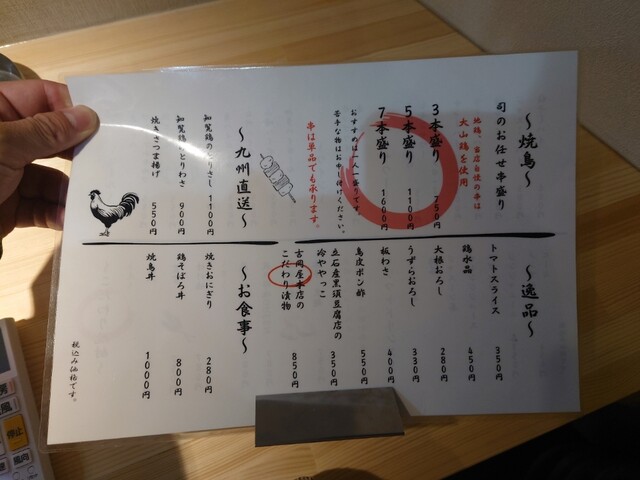 〜焼鳥〜
旬のお任せ串盛り
地鶏、当店自慢の串は
大山鶏を使用
3本盛り 750円
5本盛り 1100円
7本盛り 1600円
おすすめは一人一盛りです。
苦手な物はお申し付けください。
串は単品でも承ります。
〜九州直送〜
知覧鶏のとりさし 1100円
知覧鶏のとりわさ 900円
焼きさつま揚げ 550円
〜逸品〜
トマトスライス 350円
鶏水晶 450円
大根おろし 280円
うずらおろし 330円
板わさ 400円
鳥皮ポン酢 550円
立石産黒須豆腐店の
冷ややっこ 350円
吉岡屋本店の
こだわり漬物 850円
〜お食事〜
焼きおにぎり 280円
鶏そぼろ丼 800円
焼鳥丼 1000円
税込み価格です。
停止
風向